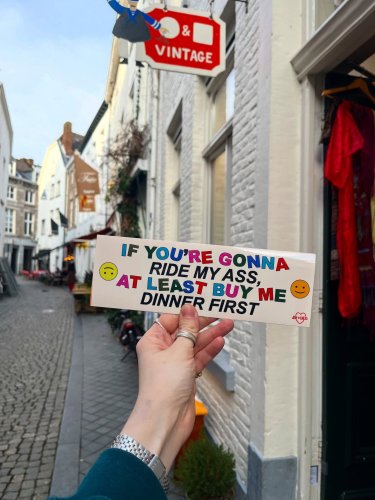 & 
VINTAGE
IF YOU'RE GONNA
RIDE MY ASS,
AT LEAST BUY ME
DINNER FIRST